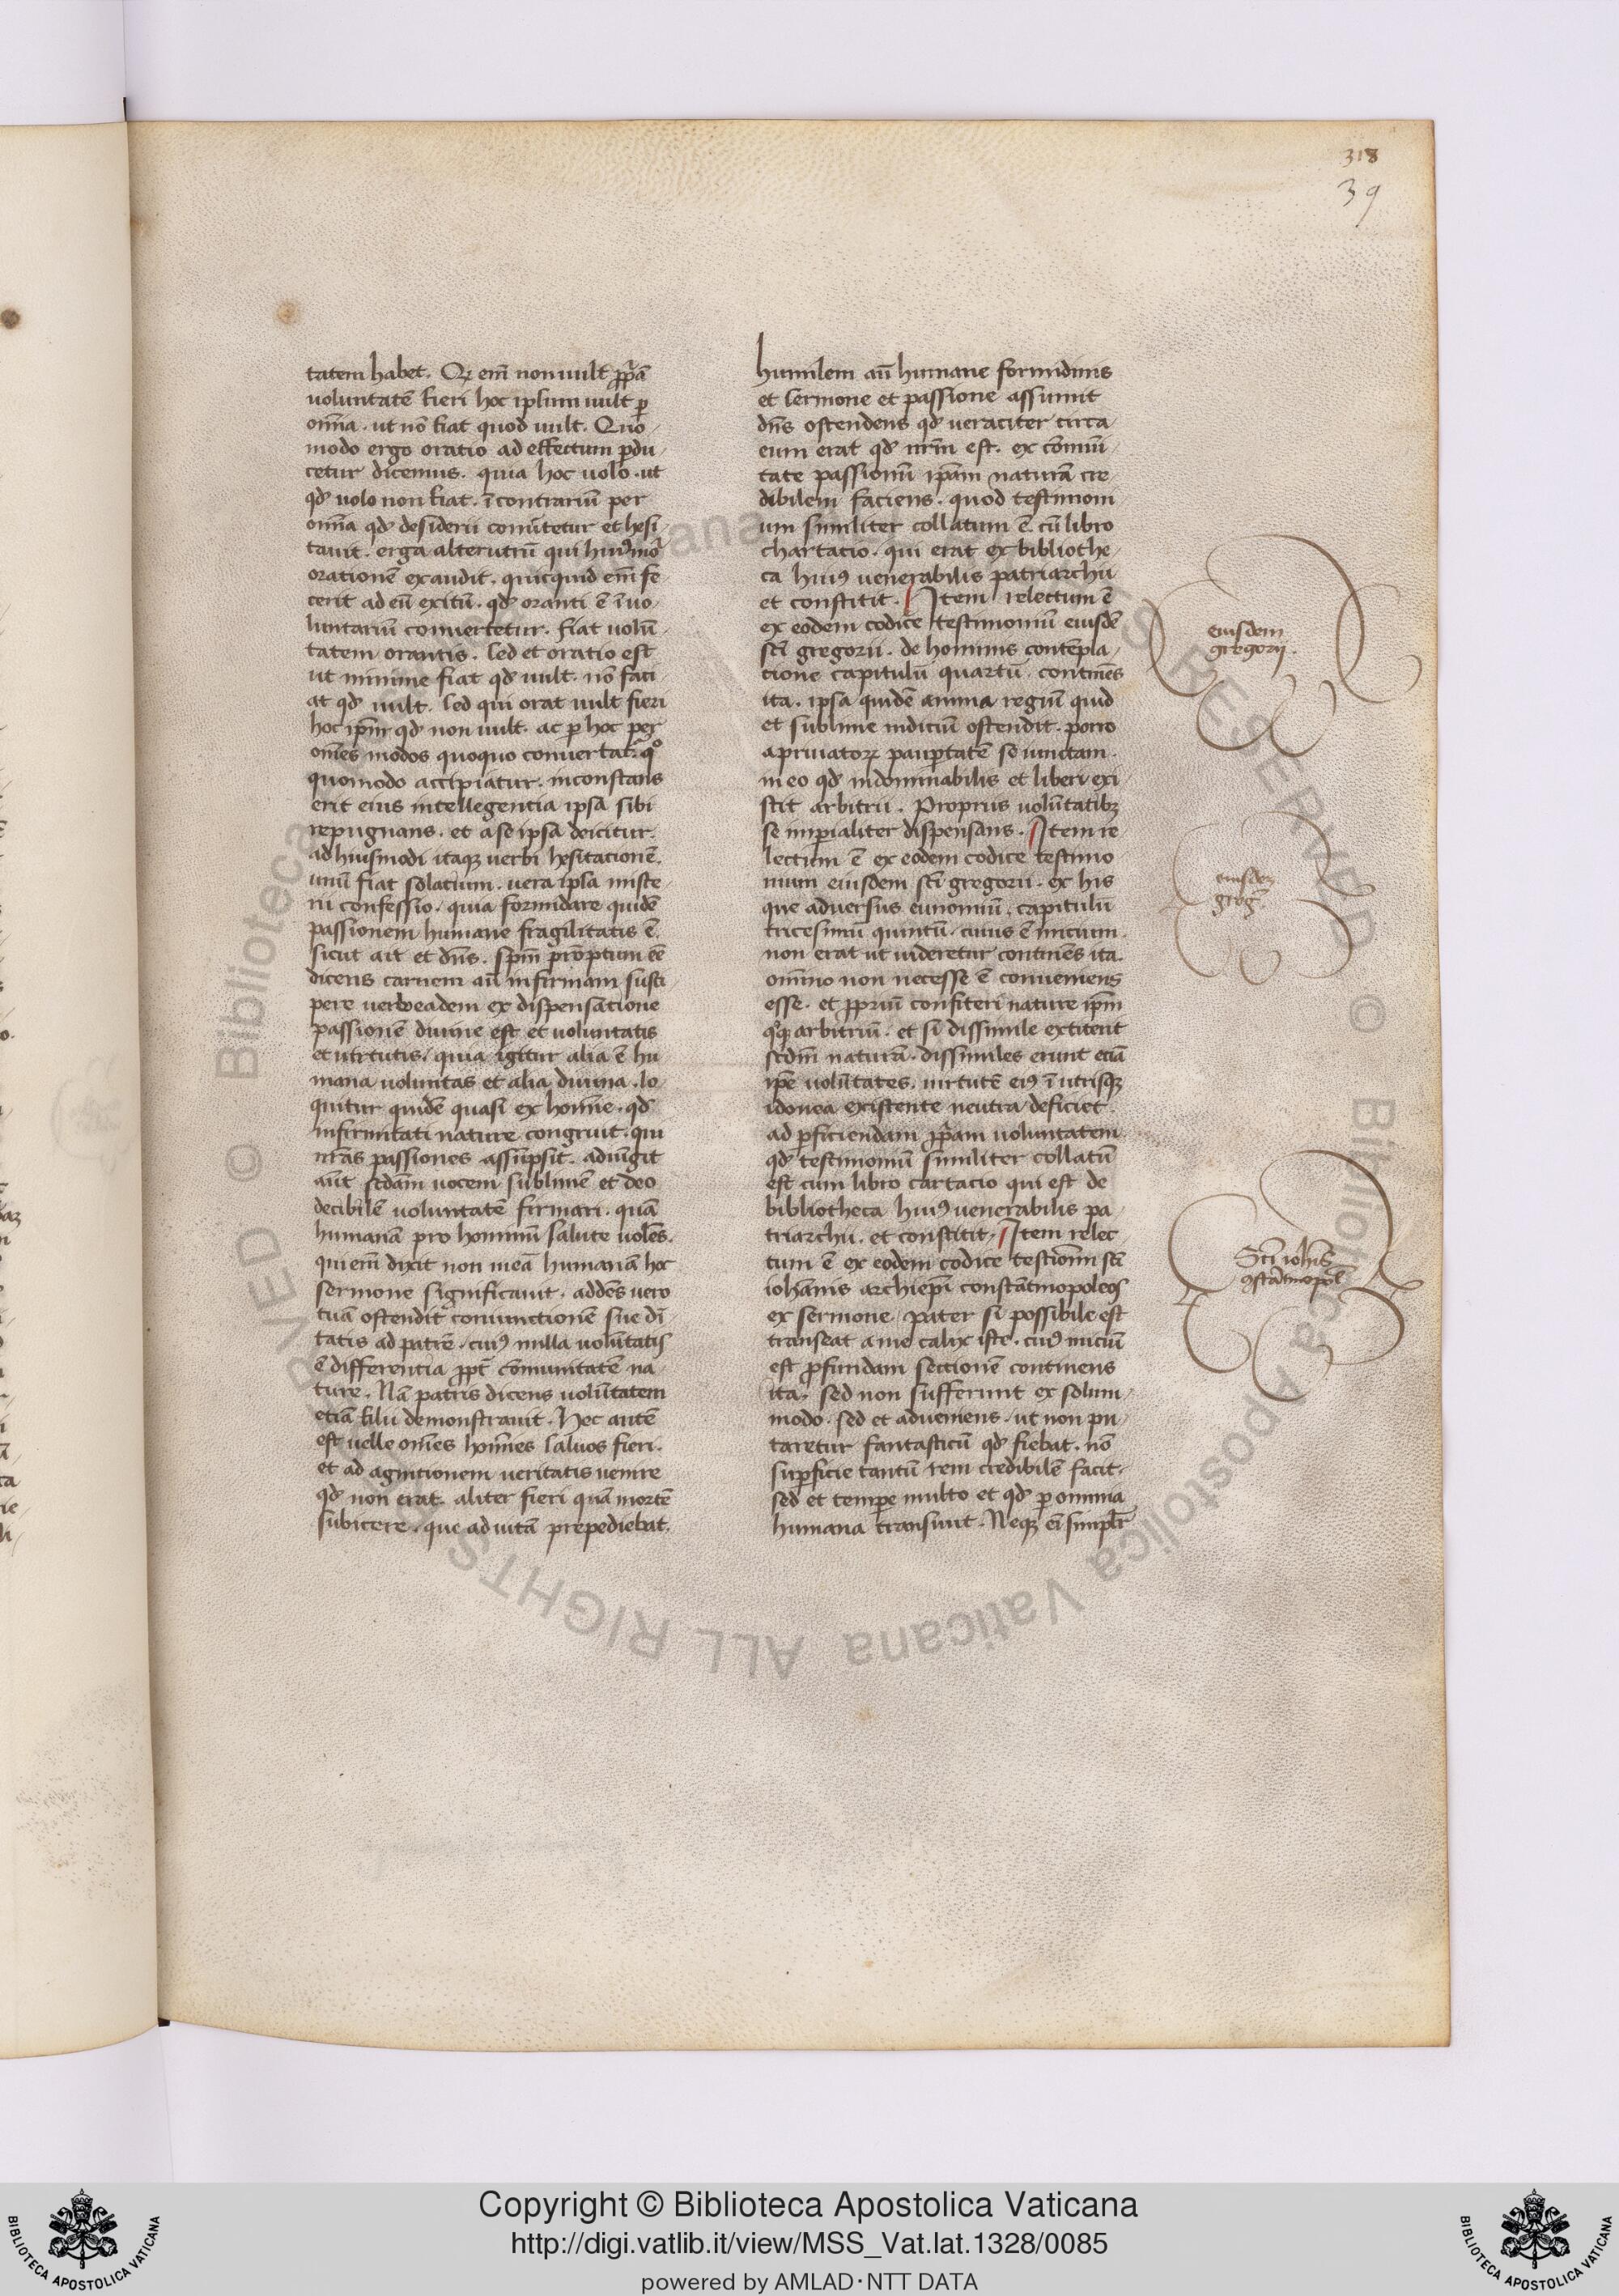 318
39
tatem habet. Qꝛ em̄ non uult ꝓp̄ā
uoluntatē fieri hoc ipsum uult ꝑ
om̄ia. ut nō fiat quod uult. Quo
modo ergo oratio ad effectum ꝓdu
cetur dicemus. quia hoc uolo. ut
qd̄ uolo non fiat. ī contrariū per
om̄ia qd̄ desiderii conūtetur et hesi
tauit. erga alterutrū qui hui9mōi
orationē exaudit. quicquid em̄ fe
cerit ad eū exitū. qd̄ oranti ē īuo
luntariū conuertetur. fiat uolū
tatem orantis. sed et oratio est
ut minime fiat qd̄ uult. nō faci
at qd̄ uult. sed qui orat uult fieri
hoc ip̄m qd̄ non uult. ac ꝑ hoc per
om̄es modos quoquo conuertat.
quomodo accipiatur. inconstans
erit eius intellegentia ipsa sibi
repugnans. et a se ipsa deicitur.
ad hiusmodi itaqꝫ uerbi hesitationē.
unū fiat solatium. uera ipsa miste
rii confessio. quia formidare quidē
passionem humane fragilitatis ē.
sicut ait et dn̄s. sp̄m promptum eē
dicens carnem aū infirmam susti
pere uero eadem ex dispensatione
passionē diuine est et uoluntatis
et uirtutis. quia igitur alia ē hu
mana uoluntas et alia diuina. lo
quitur quidē quasi ex homīe. qd̄
infirmitati nature congruit. qui
nr̄as passiones assūpsit. adiūgit
aūt scd̄am uocem sublimē et deo
decibilē uoluntatē firmari. quā
humanā pro hominū salute uolēs.
qui em̄ dixit non meā humanā hoc
sermone significauit. addēs uero
tuā ostendit coniunctionē sue di
tatis ad patrē. cui9 nulla uolūtatis
ē differentia ꝓpt̄ cōmunitatē na
ture. Nā patris dicens uolūtatem
etiā filii demonstrauit. Hec autē
est uelle om̄es homīes saluos fieri.
et ad agnitionem ueritatis uenire
qd̄ non erat. aliter fieri quā mortē
subicere. que ad uitā prepediebat.
humilem aū humane formidinis
et sermone et passione assumit
dn̄s ostendens qd̄ ueraciter circa
eum erat qd̄ nr̄m est. ex cōmuni
tate passionū ip̄am naturā cre
dibilem faciens. quod testimoni
um similiter collatum ē cū libro
chartacio. qui erat ex bibliothe
ca hui9 uenerabilis patriarchii
et constitit. Item relectum ē
ex eodem codice testimoniū eiusdē
sc̄i gregorii. de hominis contēpla
cione capitulū quartū. continēs
ita. ipsa quidē anima regiū quid
et sublime indiciū ostendit. porro
a priuatoꝝ paupertatē se iunctam.
in eo qd̄ indominabilis et liberi exi
stit arbitrii. Propriis uolūtatibꝫ
se imperialiter dispensans. Item re
lectum ē ex eodem codice testimo
nium eiusdem sc̄i gregorii. ex his
que aduersus eunomiū. capitulū
tricesimū quintū. cuius ē inicium.
non erat ut uideretur continēs ita.
om̄ino non necesse ē conueniens
esse. et ꝓpriū confiteri nature ip̄m
arbitriū. et si dissimile extiterit
scd̄m naturā. dissimiles erunt etiā
ip̄e uolūtates. uirtutē ei9 ī utrisqꝫ
idonea existente neutra deficiet.
ad ꝑficiendam ꝓp̄am uoluntatem
qd̄ testimoniū similiter collatū
est cum libro cartacio qui est de
bibliotheca hui9 uenerabilis pa
triarchii. et constitit. Item relec
tum ē ex eodem codice testiom̄ sc̄i
iohānis archiep̄i constātinopoleos
ex sermone pater si possibile est
transeat a me calix iste. cui9 iniciū
est ꝓfundam sectionē continens
ita. sed non sufferunt ex solum
modo. sed et adueniens. ut non pu
taretur fantasticū qd̄ fiebat. nō
suꝑficie tantū rem credibilē facit.
sed et tempe multo et qd̄ ꝑ omnia
humana transiuit. Neqꝫ ei simpl̄r
eiusdem
gregorij.
eiusdeꝫ
greḡ
Sc̄i ioh̄nis
9stātinopol̄
Copyright © Biblioteca Apostolica Vaticana
http://digi.vatlib.it/view/MSS_Vat.lat.1328/0085
powered by AMLAD·NTT DATA